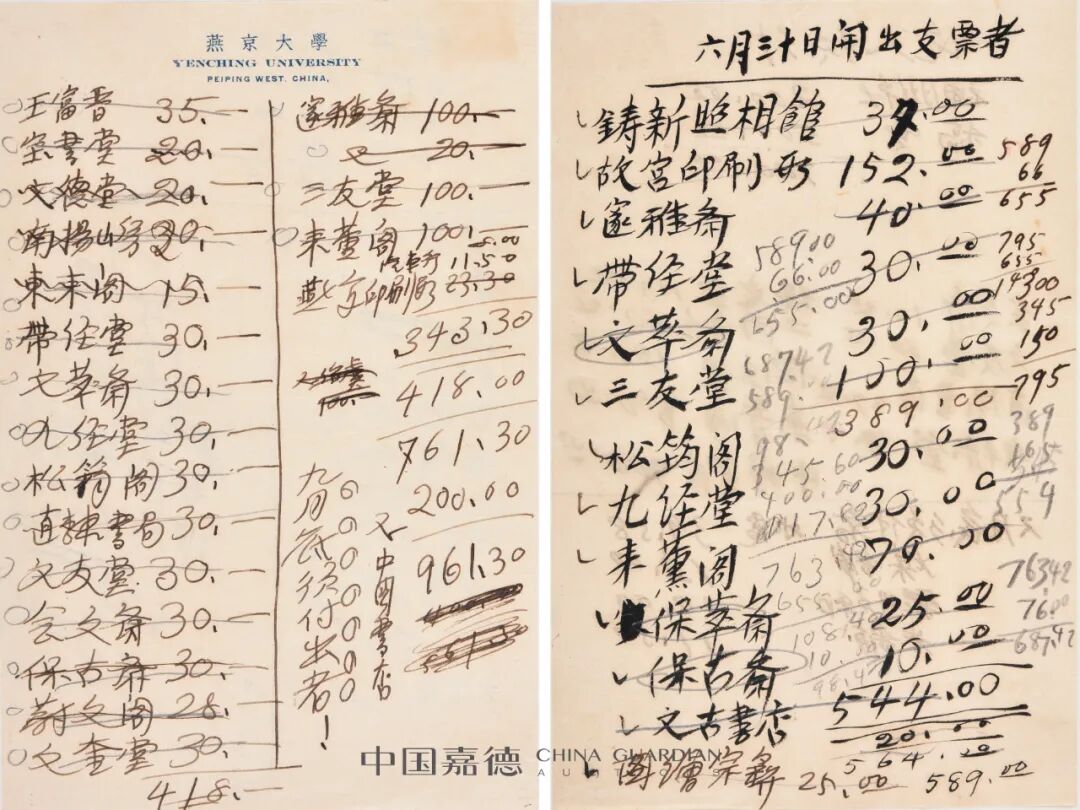 燕京大學
YENCHING UNIVERSITY
PEIPING WEST. CHINA,
王富晋 35.—
文德堂 20.—
東来阁 15.—
带经堂 30.—
文萃斋 30.—
九经堂 30.—
松筠阁 30.—
直隸書局 30.—
文友堂 30.—
会文斋 30.—
保古斋 30.—
蔚文阁 28.—
文奎堂 30.—
418.—
邃雅斋 100.—
又 20.—
三友堂 100.—
来薰阁 100.—
11.50
燕京印刷所 23.30
343.30
418.00
761.30
200.00
961.30
又中國書店
九月底须付出者!
六月三十日開出支票者
鋳新照相館 37.00
故宫印刷所 152.00
邃雅斋 40.00
带经堂 30.00
文萃斋 30.00
三友堂 100.00
389.00
松筠阁 30.00
九经堂 30.00
来薰阁 70.00
保萃斋 25.00
保古斋 10.00
544.00
文古書店 20.00
564.00
25.00 589.00
589
66
655
795
655
14300
345
150
795
589.00
66.00
655.00
687.42
389
554
763.42
76.00
687.42
中国嘉德 CHINA GUARDIAN
AUCTIONS